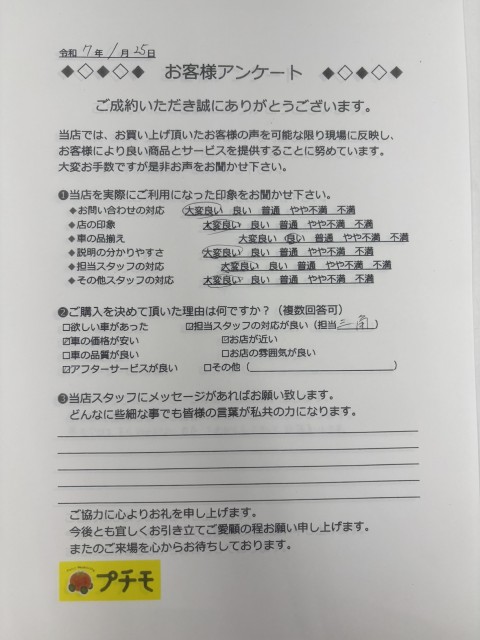 令和 7 年 1 月 25 日
◆◇◆◇◆ お客様アンケート ◆◇◆◇◆
ご成約いただき誠にありがとうございます。
当店では、お買い上げ頂いたお客様の声を可能な限り現場に反映し、
お客様により良い商品とサービスを提供することに努めています。
大変お手数ですが是非お声をお聞かせ下さい。
❶当店を実際にご利用になった印象をお聞かせ下さい。
◆お問い合わせの対応 大変良い 良い 普通 やや不満 不満
◆店の印象 大変良い 良い 普通 やや不満 不満
◆車の品揃え 大変良い 良い 普通 やや不満 不満
◆説明の分かりやすさ 大変良い 良い 普通 やや不満 不満
◆担当スタッフの対応 大変良い 良い 普通 やや不満 不満
◆その他スタッフの対応 大変良い 良い 普通 やや不満 不満
❷ご購入を決めて頂いた理由は何ですか?(複数回答可)
□欲しい車があった ☑担当スタッフの対応が良い(担当 三角)
☑車の価格が安い ☑お店が近い
□車の品質が良い □お店の雰囲気が良い
☑アフターサービスが良い □その他( )
❸当店スタッフにメッセージがあればお願い致します。
どんなに些細な事でも皆様の言葉が私共の力になります。
ご協力に心よりお礼を申し上げます。
今後とも宜しくお引き立てご愛顧の程お願い申し上げます。
またのご来場を心からお待ちしております。
プチモ